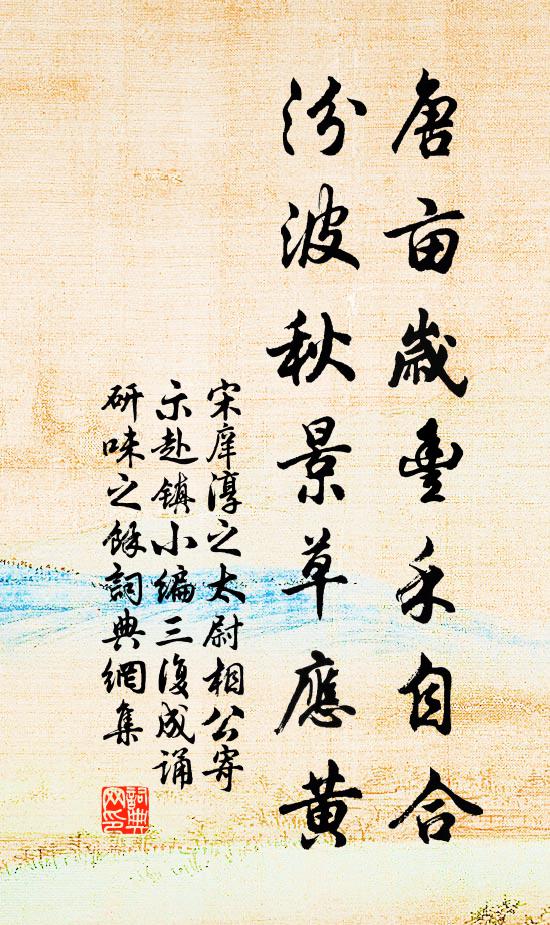 唐亩岁豊禾自合
汾波秋景草應黄
宋庠淳之太尉相公寄
示赴镇小编三復成诵
研味之餘詞典網集
詞典
网印